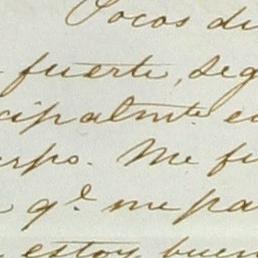 Pocos di
fuerte, seg
cipalmte. e
erpo. Me fu
qe. me pa
estoy buen